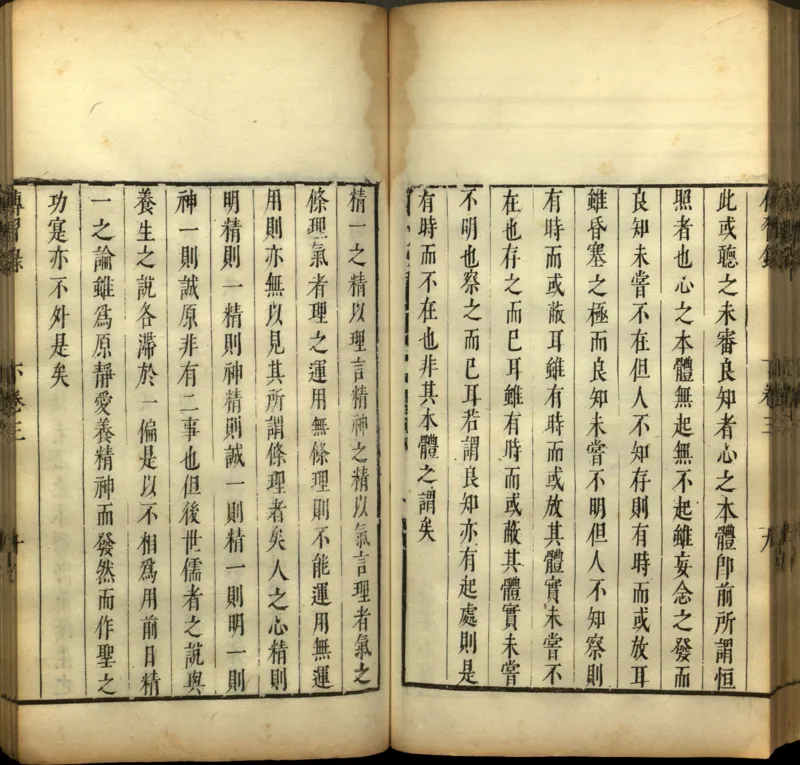 此或聽之未審良知者心之本體卽前所謂恒
照者也心之本體無起無不起雖妄念之發而
良知未嘗不在但人不知存則有時而或放耳
雖昏塞之極而良知未嘗不明但人不知察則
有時而或蔽耳雖有時而或放其體實未嘗不
在也存之而已耳雖有時而或蔽其體實未嘗
不明也察之而已耳若謂良知亦有起處則是
有時而不在也非其本體之謂矣
精一之精以理言精神之精以氣言理者氣之
條理氣者理之運用無條理則不能運用無運
用則亦無以見其所謂條理者矣人之心精則
明精則一精則神精則誠一則精一則明一則
神一則誠原非有二事也但後世儒者之說與
養生之說各滯於一偏是以不相爲用前日精
一之論雖爲原靜愛養精神而發然而作聖之
功寔亦不外是矣
傳習錄
卷三